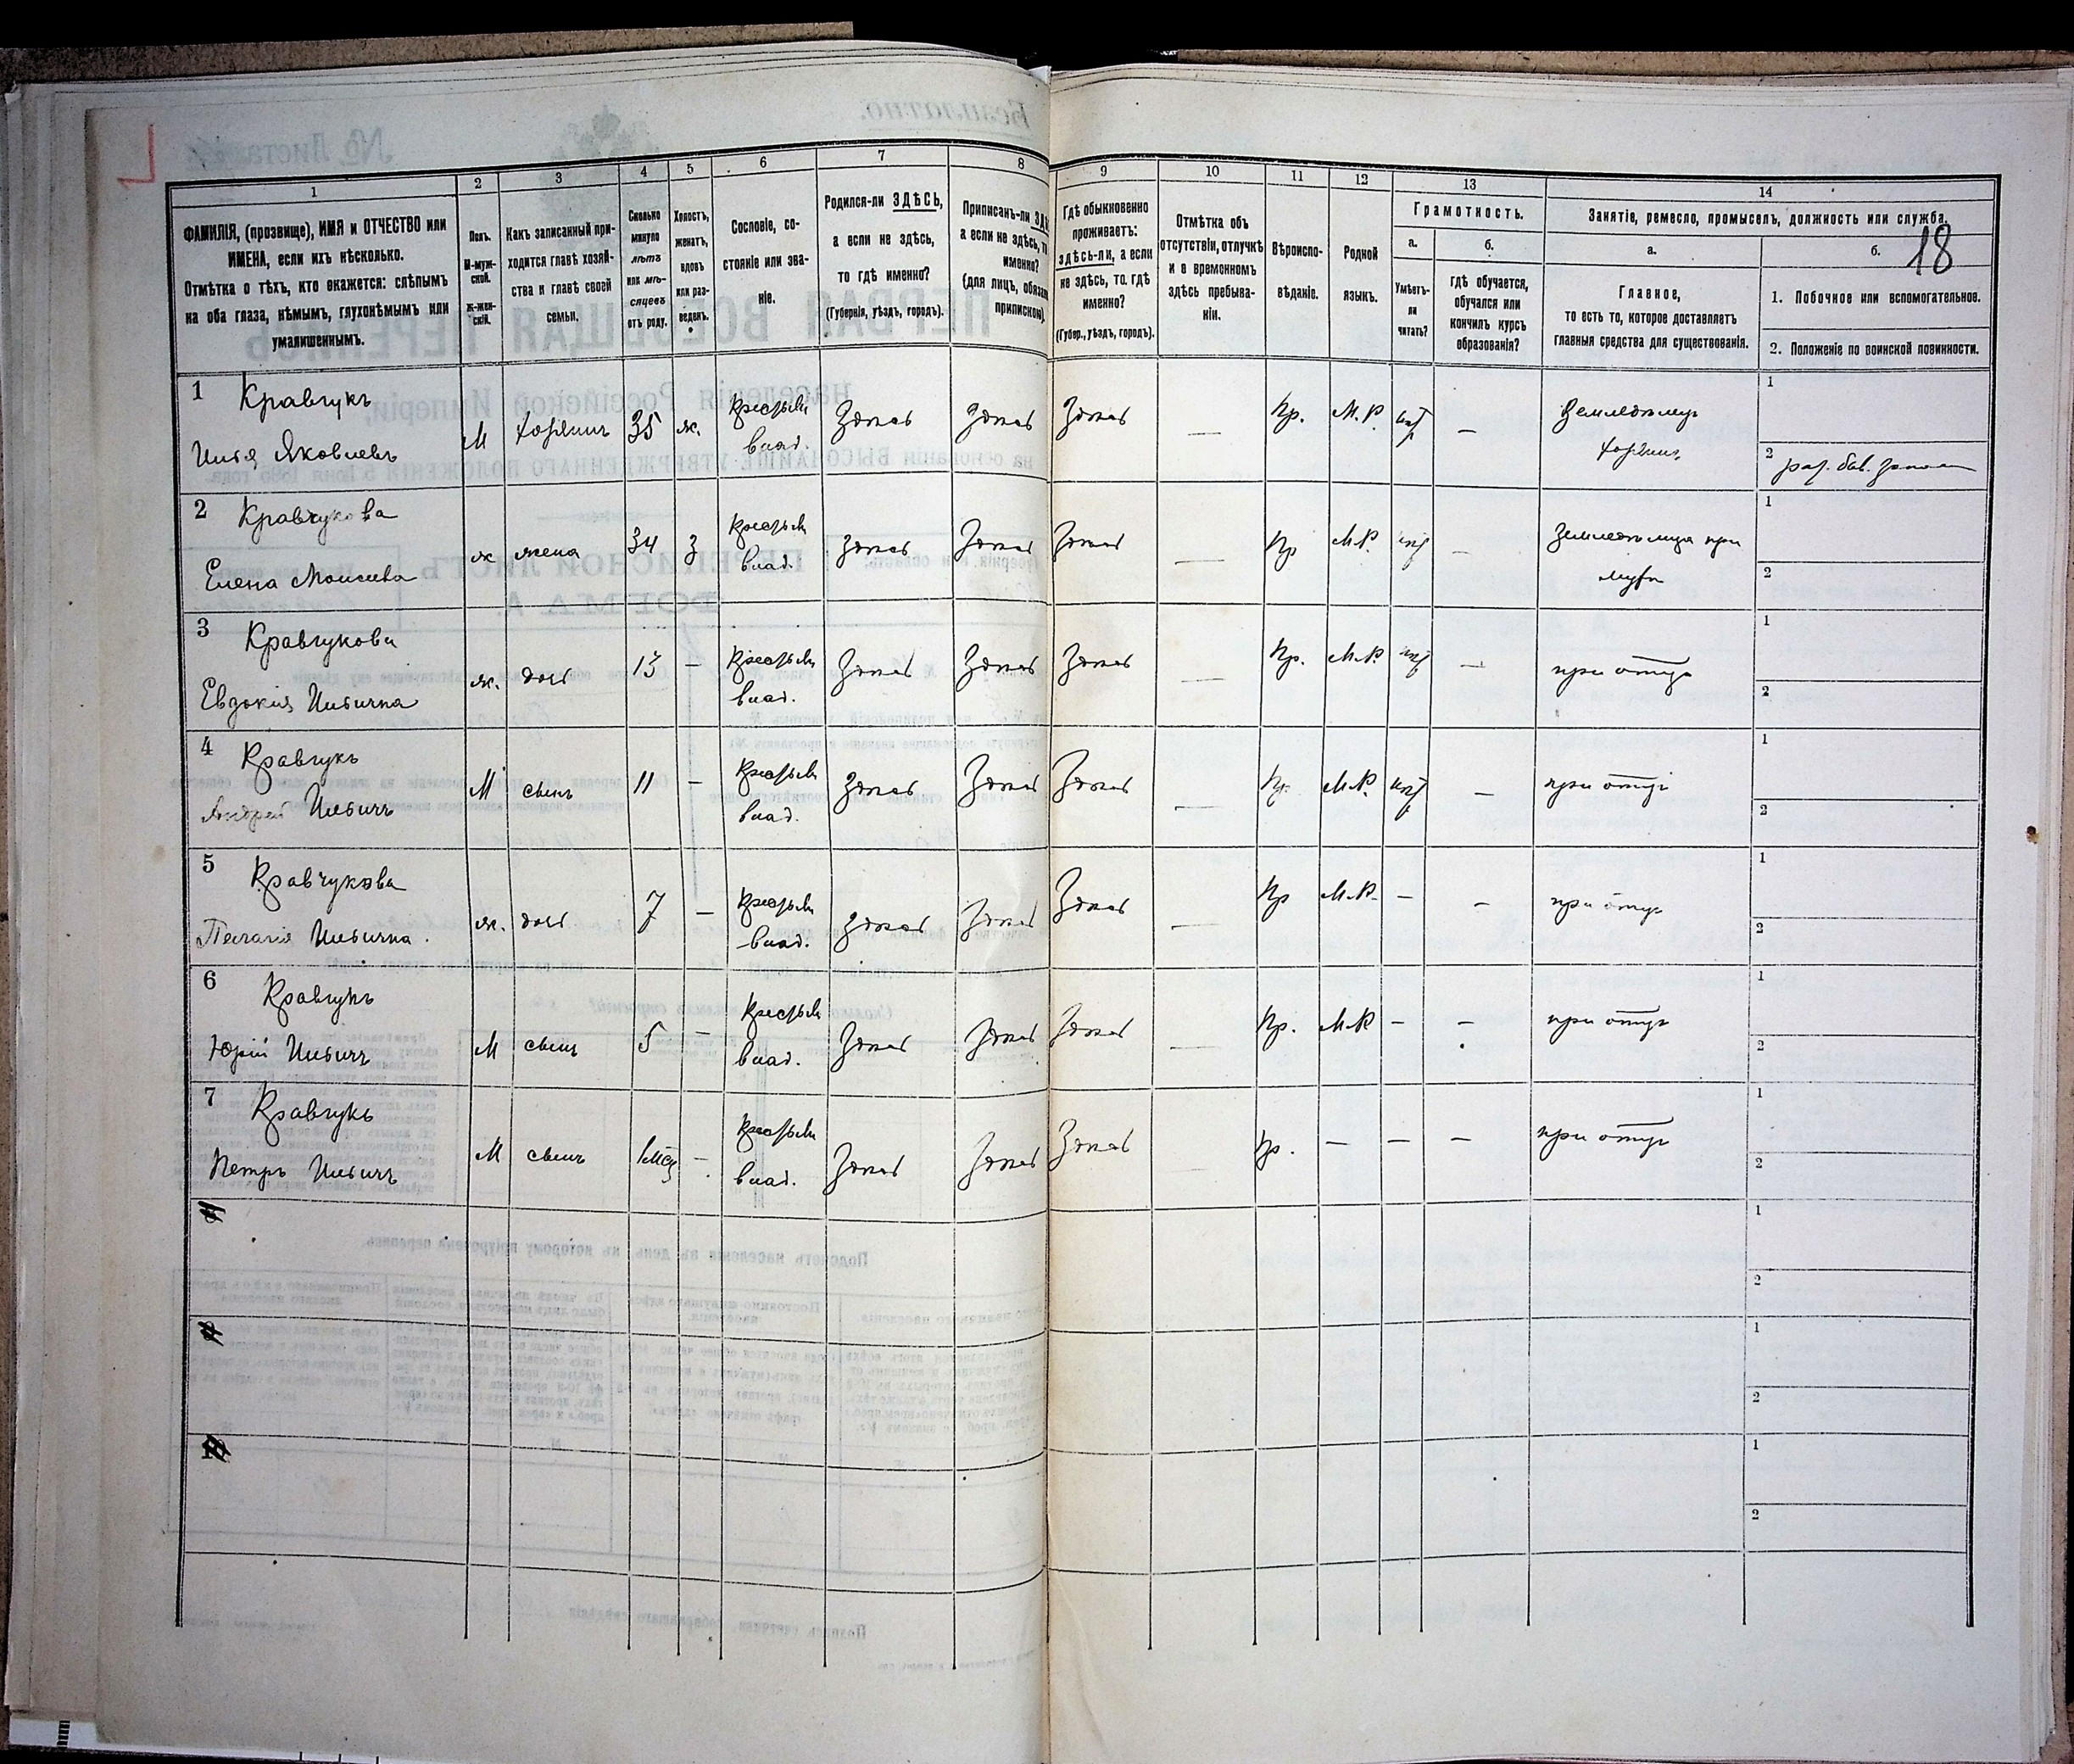 18
1
2
3
4
5
6
7
8
9
10
11
12
13
14
ФАМИЛІЯ, (прозвище), ИМЯ и ОТЧЕСТВО или
ИМЕНА, если ихъ нѣсколько.
Отмѣтка о тѣхъ, кто окажется: слѣпымъ
на оба глаза, нѣмымъ, глухонѣмымъ или
умалишеннымъ.
Полъ.
М-муж-
ской.
Ж-жен-
скій.
Какъ записанный при-
ходится главѣ хозяй-
ства и главѣ своей
семьи.
Сколько
минуло
лѣтъ
или мѣ-
сяцевъ
отъ роду.
Холостъ,
женатъ,
вдовъ
или раз-
веденъ.
Сословіе, со-
стояніе или зва-
ніе.
Родился-ли ЗДѢСЬ,
а если не здѣсь,
то гдѣ именно?
(Губернія, уѣздъ, городъ).
Приписанъ-ли
а если не здѣсь, то
именно?
(для лицъ,
припискою).
Гдѣ обыкновенно
проживаетъ:
здѣсь-ли, а если
не здѣсь, то. гдѣ
именно?
(Губер., уѣздъ, городъ).
Отмѣтка объ
отсутствіи, отлучкѣ
и о временномъ
здѣсь пребыва-
ніи.
Вѣроиспо-
вѣданіе.
Родной
языкъ.
Грамотность.
а.
б.
Умѣетъ-
ли
читать?
гдѣ обучается,
обучался или
кончилъ курсъ
образованія?
Занятіе, ремесло, промыселъ, должность или служба.
а.
б.
Главное,
то есть то, которое доставляетъ
главныя средства для существованія.
1. Побочное или вспомогательное.
2. Положеніе по воинской повинности.
1 Кравчукъ
Илья Яковлевъ
М хозяинъ 35 ж. Крестьян влад. Здѣсь Здѣсь Здѣсь — Пр. М.Р. нѣт — Земледѣлец хозяинъ
1
2
2 Кравчукова
Елена Моисеева
ж жена 34 З Крестьян влад. Здѣсь Здѣсь Здѣсь — Пр М.Р. нѣт — Земледѣлица при мужѣ
1
2
3 Кравчукова
Евдокія Ильична
ж. дочь 13 — Крестьян влад. Здѣсь Здѣсь Здѣсь — Пр. М.Р. нѣт — при отцѣ
1
2
4 Кравчукъ
Андрей Ильичъ
М сынъ 11 — Крестьян влад. Здѣсь Здѣсь Здѣсь — Пр. М.Р. нѣт — при отцѣ
1
2
5 Кравчукова
Пелагія Ильична.
ж. дочь 7 — Крестьян влад. Здѣсь Здѣсь Здѣсь — Пр М.Р. — — при отцѣ
1
2
6 Кравчукъ
Юрій Ильичъ
М сынъ 5 — Крестьян влад. Здѣсь Здѣсь Здѣсь — Пр. М.Р — — при отцѣ
1
2
7 Кравчукъ
Петръ Ильичъ
М сынъ 1 мѣс — Крестьян влад. Здѣсь Здѣсь Здѣсь — Пр. — — — при отцѣ
1
2
8
1
2
9
1
2
10
1
2